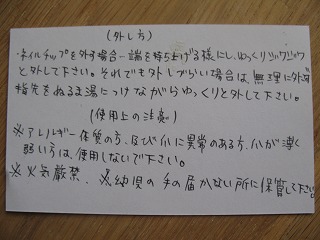 (外し方)
・ネイルチップを外す場合一端を持ち上げる様にし、ゆっくりジワジワ
と外して下さい。それでも外しづらい場合は、無理に外さず
指先をぬるま湯につけながらゆっくりと外して下さい。
(使用上の注意)
※アレルギー体質の方、及び爪に異常のある方、爪が薄く
弱い方は、使用しないで下さい。
※火気厳禁、※幼児の手の届かない所に保管して下さい。